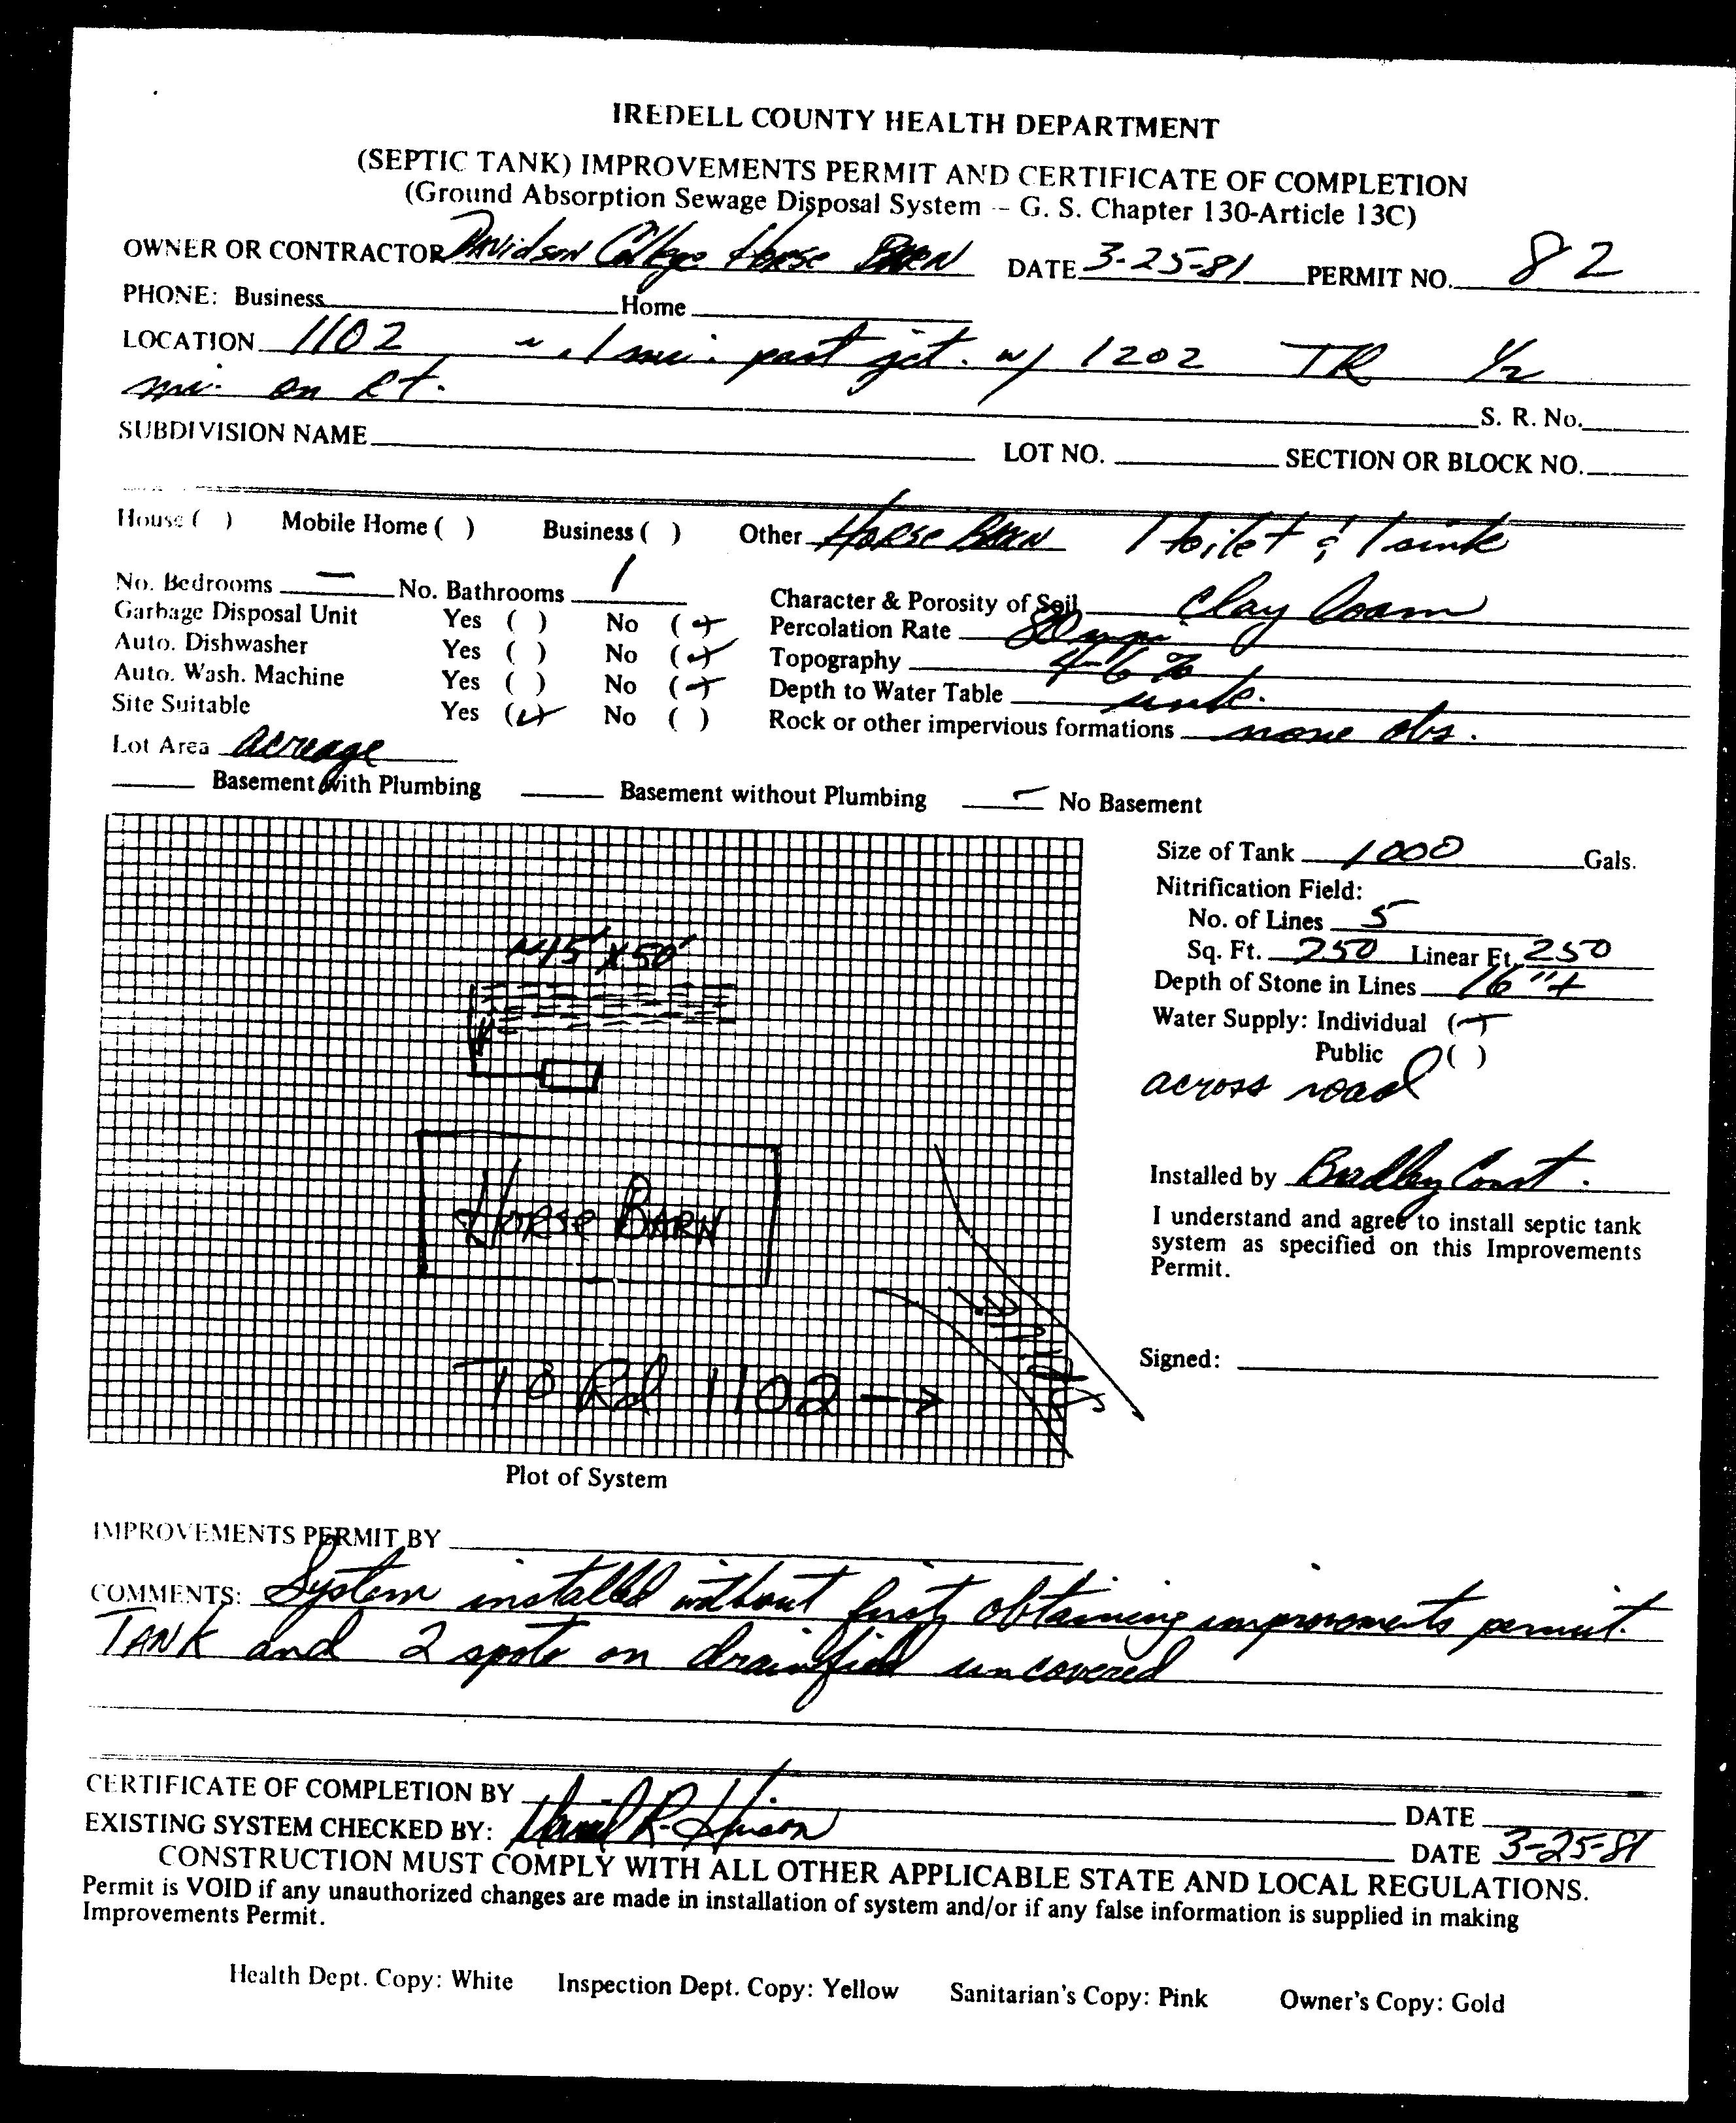 IREDELL COUNTY HEALTH DEPARTMENT
(SEPTIC TANK) IMPROVEMENTS PERMIT AND CERTIFICATE OF COMPLETION
(Ground Absorption Sewage Disposal System -- G. S. Chapter 130-Article 13C)
OWNER OR CONTRACTOR Davidson College Horse Barn DATE 3-25-81 PERMIT NO. 82
PHONE: Business Home
LOCATION 1102 ~ .1 mi. past jct. w/ 1202 TR 1/2
mi. on Rt. S. R. No.
SUBDIVISION NAME LOT NO. SECTION OR BLOCK NO.
House ( ) Mobile Home ( ) Business ( ) Other Horse Barn 1 toilet & 1 sink
No. Bedrooms — No. Bathrooms 1
Character & Porosity of Soil Clay loam
Garbage Disposal Unit Yes ( ) No (✓)
Percolation Rate 80 mpi
Auto. Dishwasher Yes ( ) No (✓)
Topography 4-6 %
Auto. Wash. Machine Yes ( ) No (✓)
Depth to Water Table unk.
Site Suitable Yes (✓) No ( )
Rock or other impervious formations none obs.
Lot Area acreage
Basement with Plumbing Basement without Plumbing ✓ No Basement
Size of Tank 1000 Gals.
Nitrification Field:
No. of Lines 5
Sq. Ft. 750 Linear Ft. 250
Depth of Stone in Lines 16"+
Water Supply: Individual (✓)
Public ( )
across road
~15' X 50'
Installed by Bradley Const.
I understand and agree to install septic tank
system as specified on this Improvements
Permit.
HORSE BARN
Signed:
TO Rd 1102 →
Plot of System
IMPROVEMENTS PERMIT BY
COMMENTS: System installed without first obtaining improvments permit.
TANK and 2 spots on drainfield uncovered
CERTIFICATE OF COMPLETION BY DATE
EXISTING SYSTEM CHECKED BY: R. DATE 3-25-81
CONSTRUCTION MUST COMPLY WITH ALL OTHER APPLICABLE STATE AND LOCAL REGULATIONS.
Permit is VOID if any unauthorized changes are made in installation of system and/or if any false information is supplied in making
Improvements Permit.
Health Dept. Copy: White Inspection Dept. Copy: Yellow Sanitarian's Copy: Pink Owner's Copy: Gold